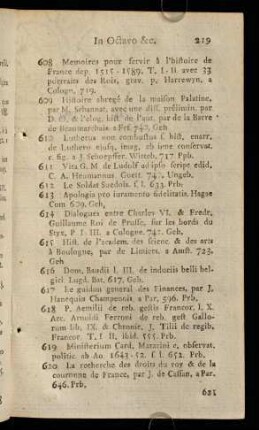 In Octavo &c. 219
608 Memoires pour servir à l'histoire de
France dep. 1515-1589. T. I-II avec 33
portraits des Rois, grav. p. Harrewyn, a
Cologn, 719.
609 Histoire abregé de la maison Palatine,
par M. Schannat, avec une diss. prélimin. par
de Beaumarchais. a Frf. 740. Geh
610 Lutherus non combustus s. hist. enarr.
de Luthero ejusq. imag. ab igne conservat.
c. fig. a J. Schoepffer. Witteb. 717. Ppb.
611 Vita G. M. de Ludolf ab ipso scripe. edid.
C. A. Heumannus. Goett. 740. Ungeb.
612 Le Soldat Suedois. f. l. 633. Prb
613 Apologia pro juramento fidelitatis. Hagae
Com 609. Geh,
614 Dialogues entre Charles VI. & Fredr,
Guillaume Roi de Prusse, sur les bords du
Styx, P I-III. a Cologne. 741. Geh.
615 Hist. de l'academ. des scienc. & des arts
à Boulogne, par de Limiers. a Amst. 723.
Geh
616 Dom. Baudii l. III. de induciis belli bel-
gici Lugd. Bat. 617. Geh.
617 Le guidon general des Finances, par J.
Hanequin Champenois. a Par, 596. Prb.
618 P. Aemilii de reb. gestis Francor. l. X
Arc. Arnoldi Ferroni de reb. gest Gallo-
rum lib. IX. & Chronic, J. Tilii de regib,
Francor. T. I II, ibid. 555. Prb
619 Ministerium Card, Mazarini c. observat,
politic ab Ao. 1643-52. f. l. 652. Prb.
620 La recherche des droits du roy & de la
couronne de France, par J. de Cassan, a Par.
646. Prb,
621